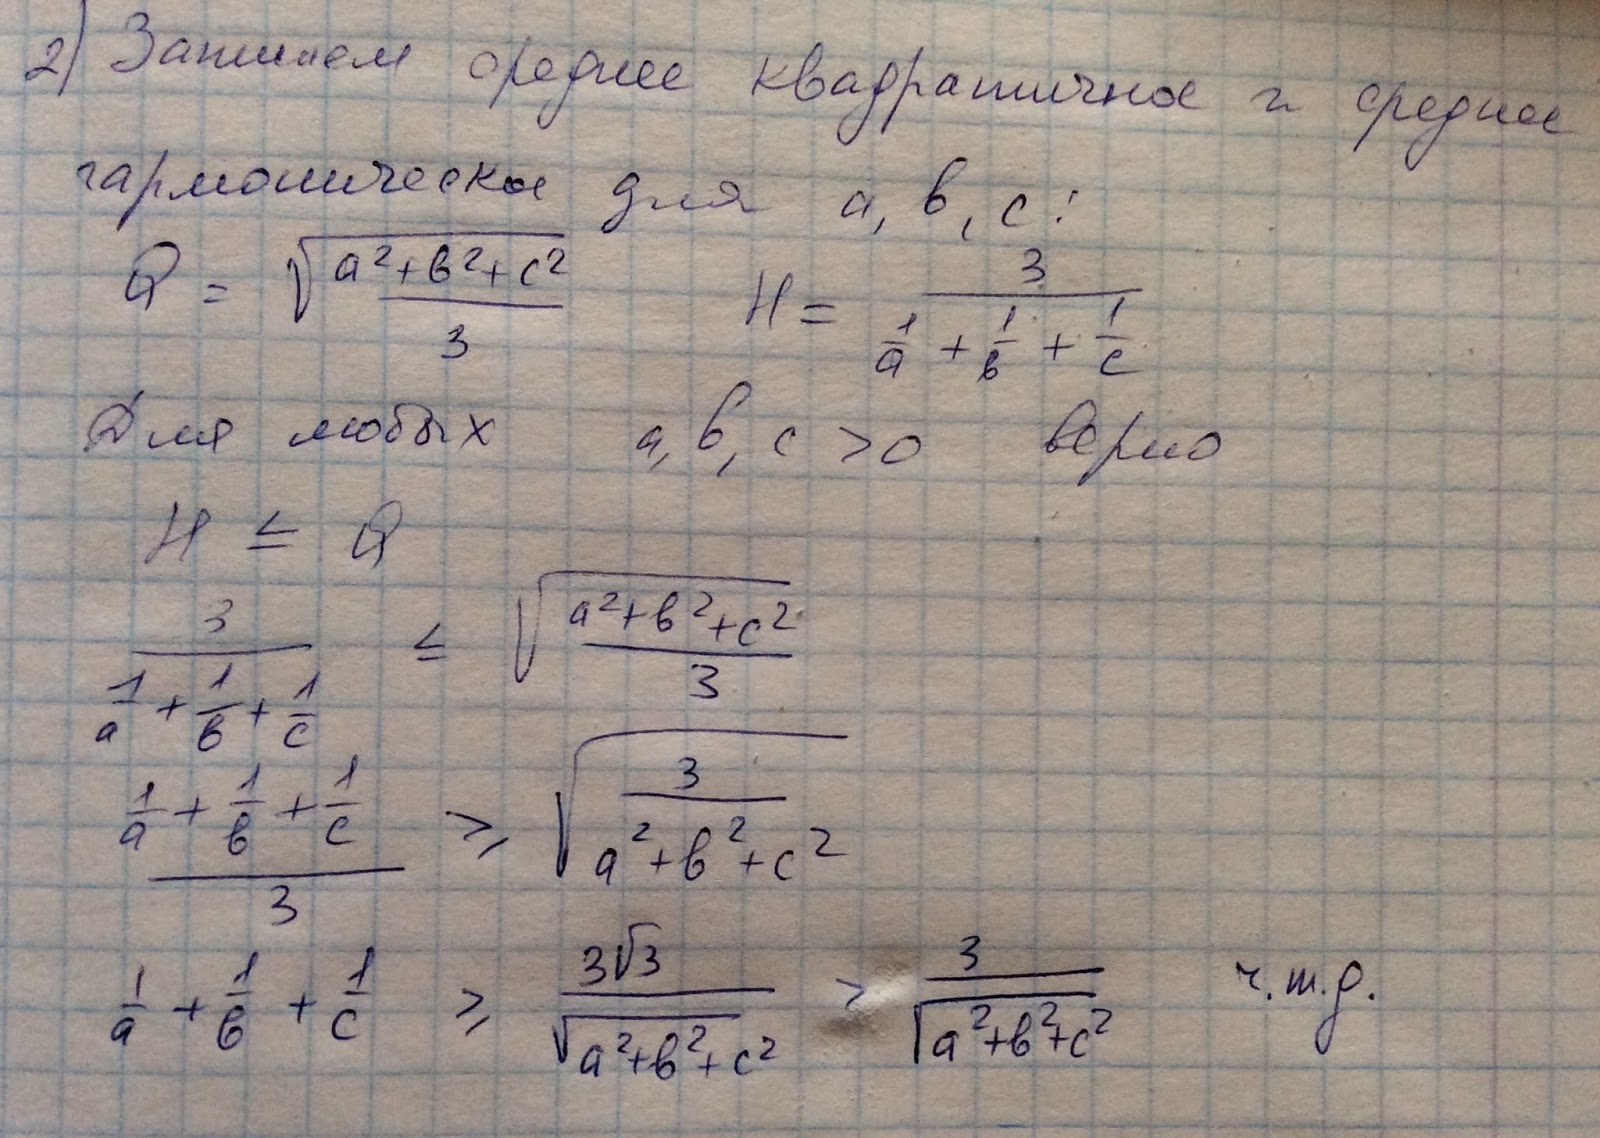 2) Запишем среднее квадратичное и среднее
гармоническое для a, b, c:
Q = √((a²+b²+c²)/3)  H = 3/(1/a + 1/b + 1/c)
Для любых a, b, c > 0 верно
H ≤ Q
3/(1/a + 1/b + 1/c) ≤ √((a²+b²+c²)/3)
(1/a + 1/b + 1/c)/3 ≥ √(3/(a²+b²+c²))
1/a + 1/b + 1/c ≥ 3√3/√(a²+b²+c²) > 3/√(a²+b²+c²)  ч.т.д.